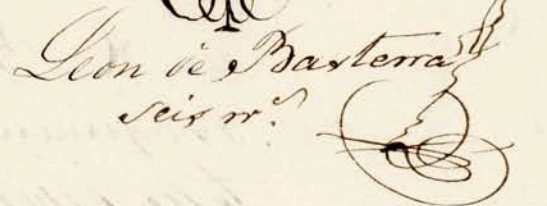 Leon de Basterra
seis rr.s